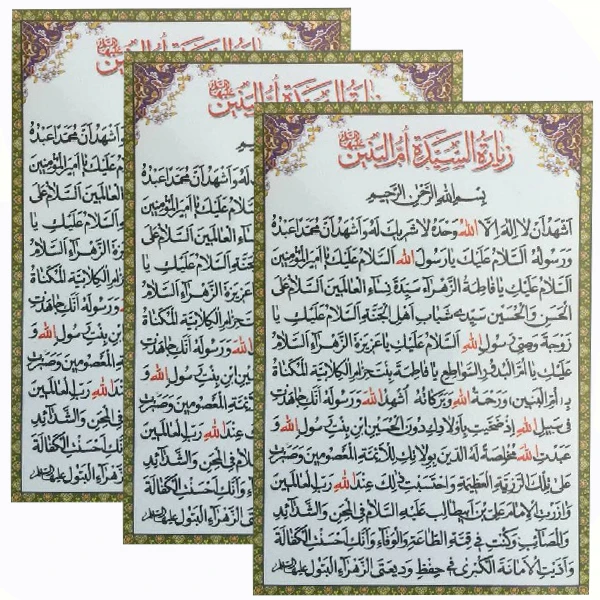 زيارة السيدة أم البنين عليها السلام
بسم الله الرحمن الرحيم
اشهد ان لا اله الا الله وحده لا شريك له واشهد ان محمدا عبده
ورسوله السلام عليك يا رسول الله السلام عليك يا امير المؤمنين
السلام عليك يا فاطمة الزهراء سيدة نساء العالمين السلام على
الحسن والحسين سيدي شباب اهل الجنة السلام عليك يا
زوجة وصي رسول الله السلام عليك يا عزيزة الزهراء السلام
عليك يا ام البدور السواطع يا فاطمة بنت حزام الكلابية المكناة
بـ ام البنين، ورحمة الله وبركاته اشهد الله ورسوله انك جاهدت
في سبيل الله اذ ضحيت باولادك دون الحسين ابن بنت رسول الله و
عبدت الله مخلصة له الدين بولائك للائمة المعصومين وصبرت
على تلك الرزية العظيمة واحتسبت ذلك عند الله رب العالمين
وازرت الامام علي بن ابيطالب عليه السلام في المحن والشدائد
والمصائب وكنت في قمة الطاعة والوفاء وانك احسنت الكفالة
واديت الامانة الكبرى في حفظ وديعتي الزهراء البتول عليها السلام